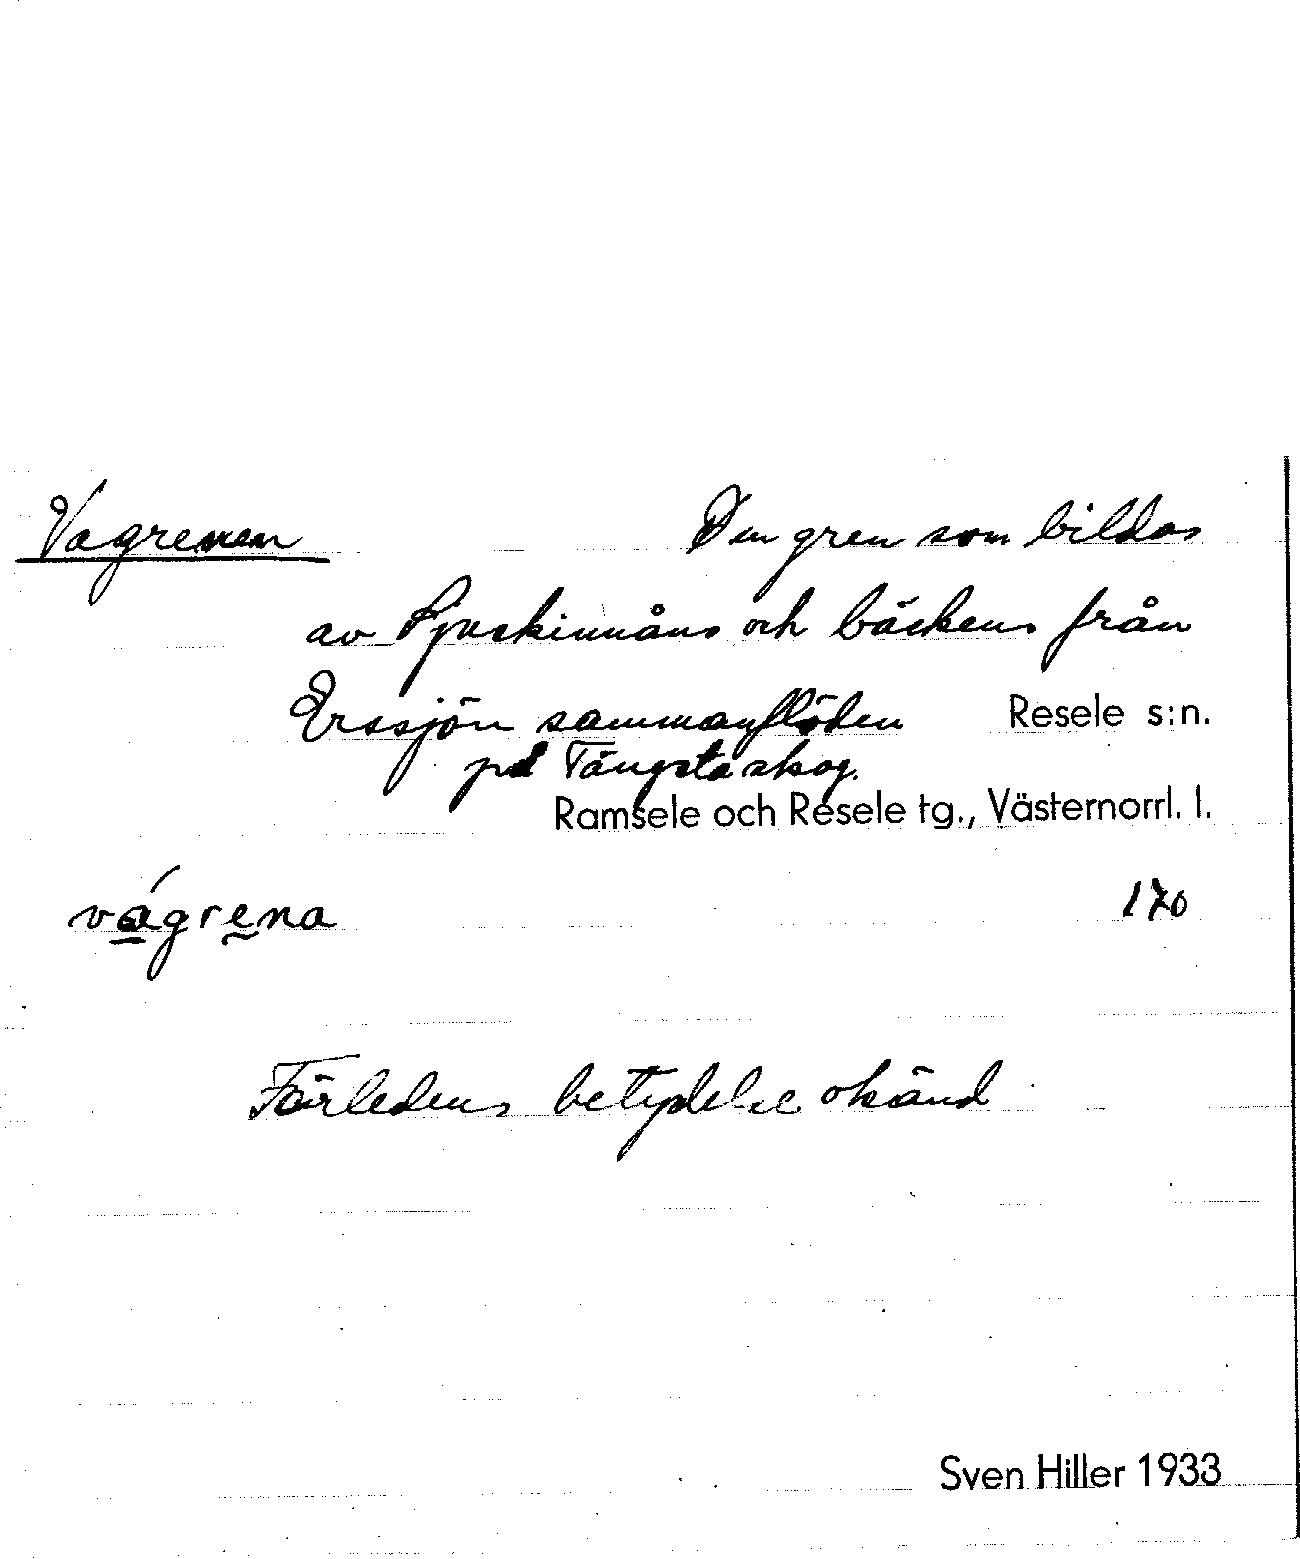 Vagrenen Den gren som bildas
av Tjuvskinnåns och bäckens från
Erssjön sammanflöden Resele s:n.
på Tängsta skog.
Ramsele och Resele tg., Västernorrl. l.
vágrena 170
Förledens betydelse okänd
Sven Hiller 1933